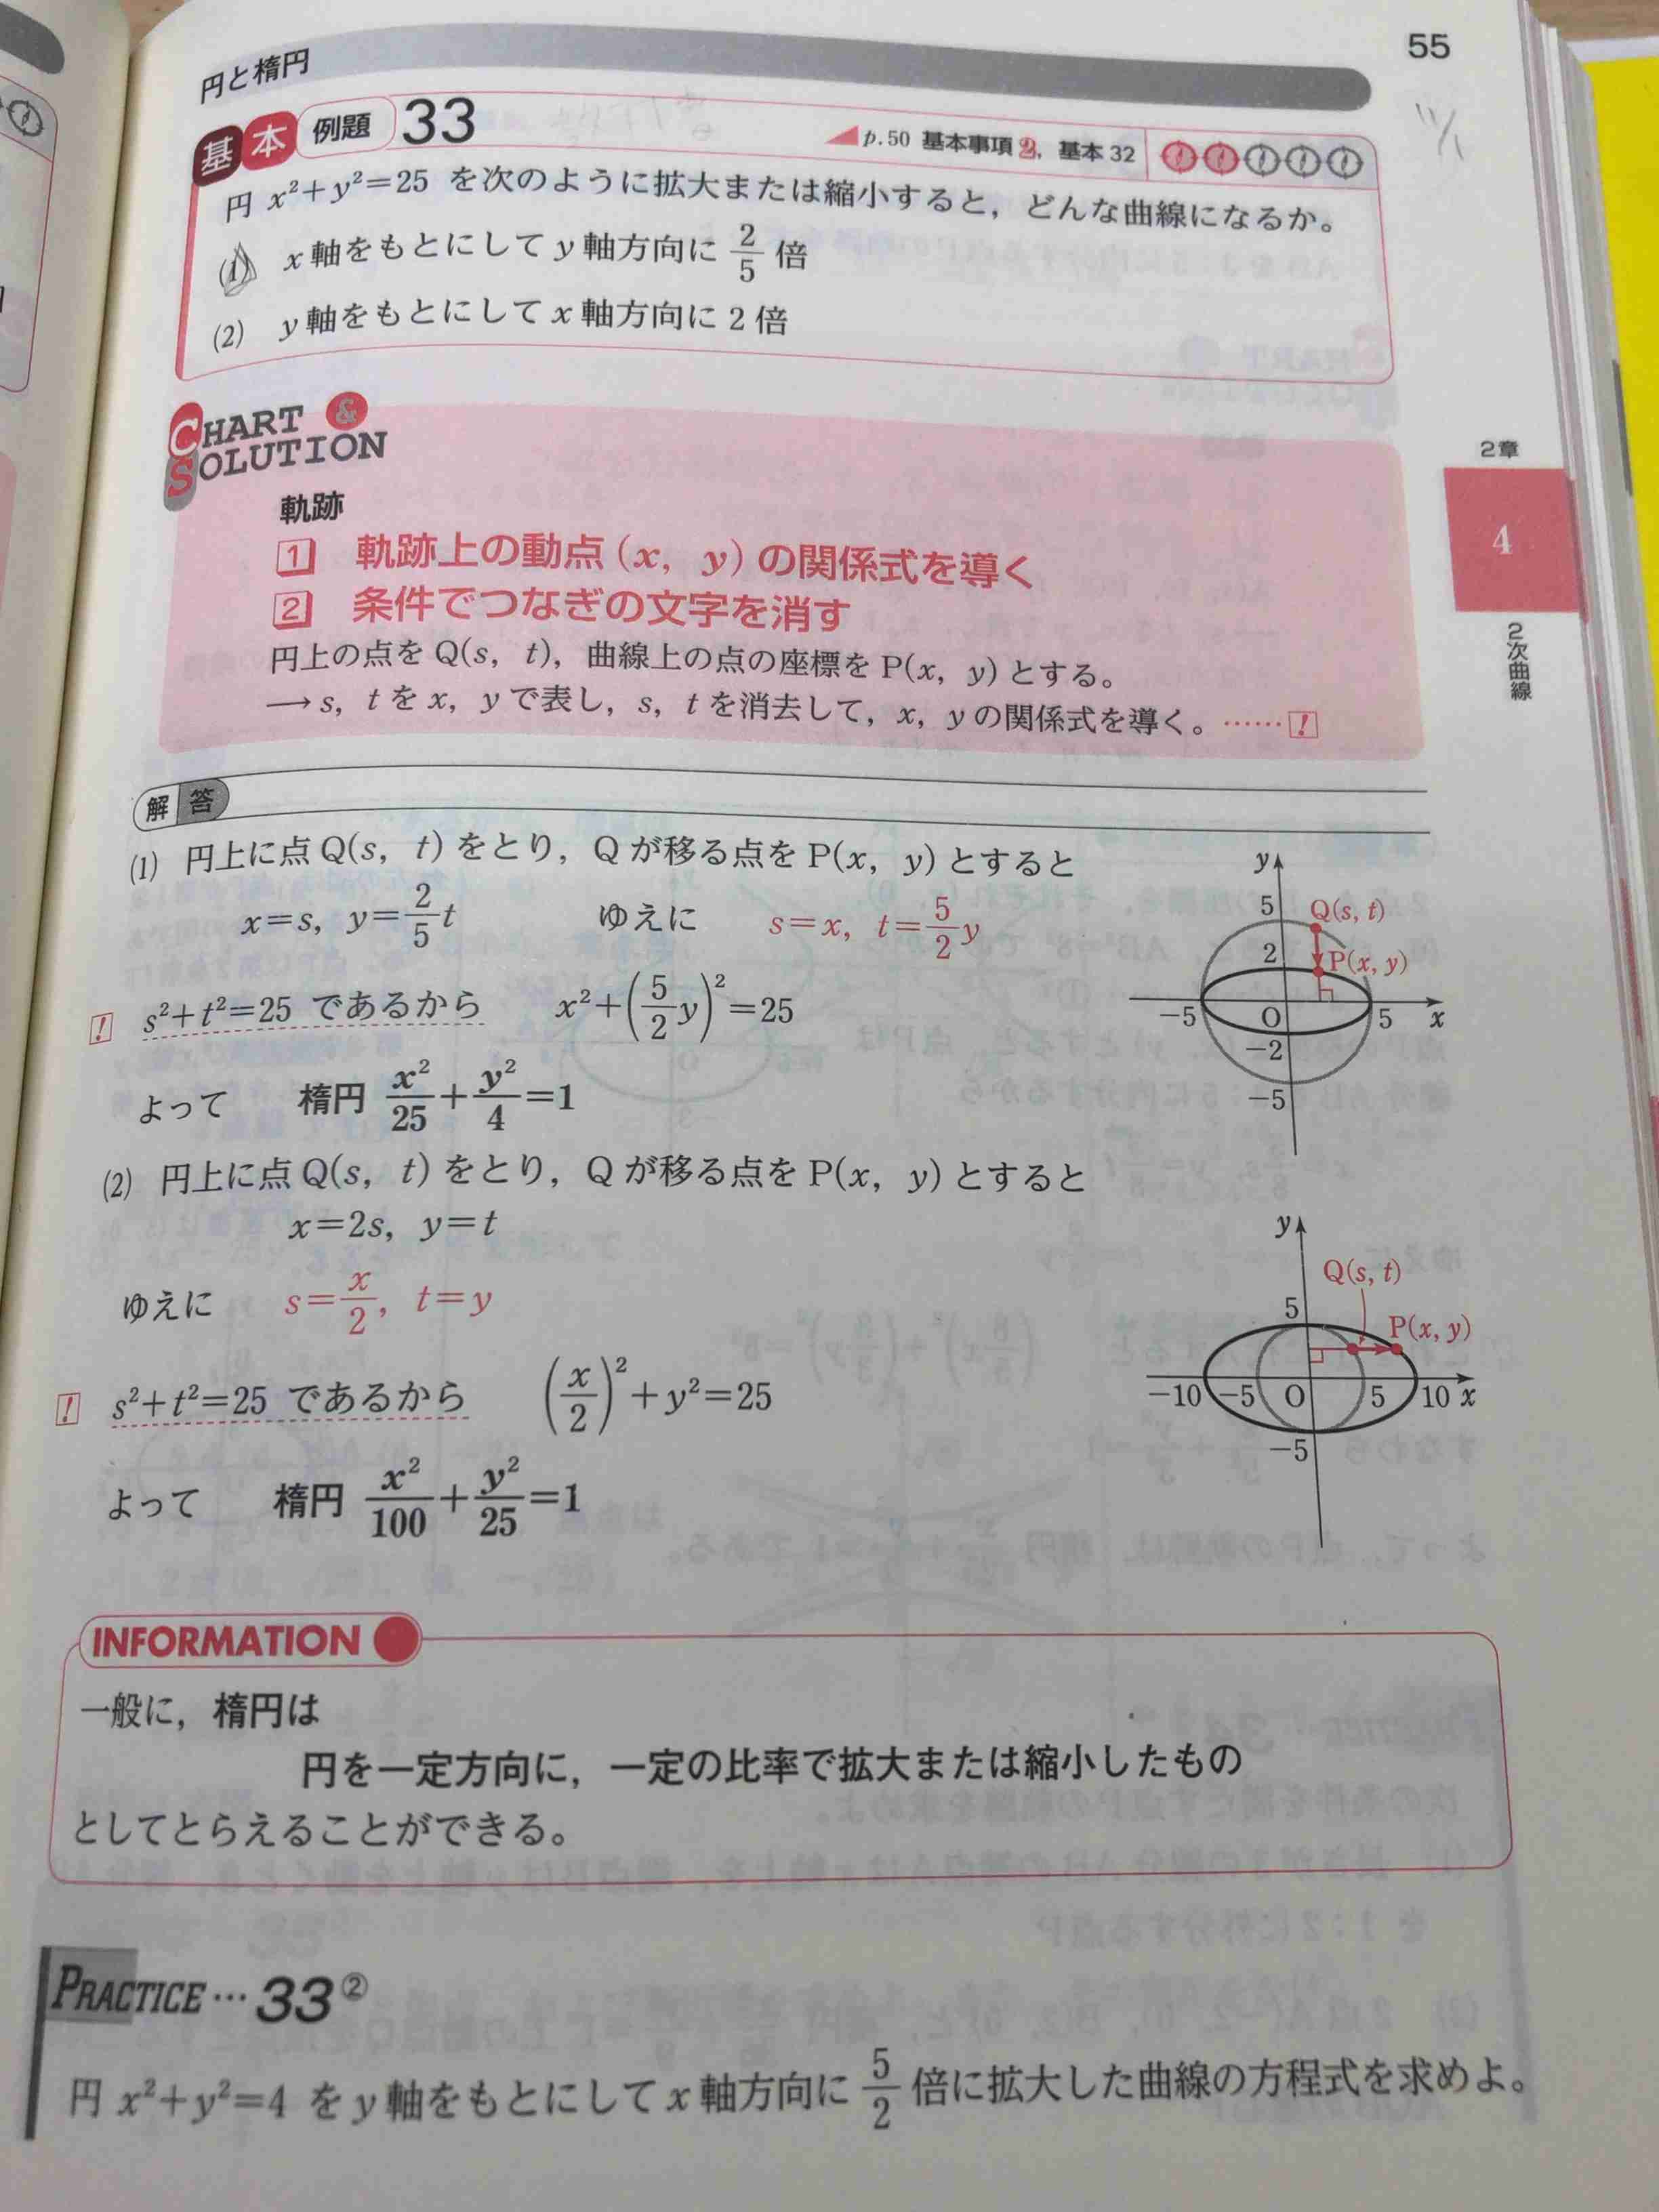 55
円と楕円
基本 例題 33
p.50 基本事項 2, 基本 32
円 x²+y²=25 を次のように拡大または縮小すると，どんな曲線になるか。
(1) x 軸をもとにして y 軸方向に 2/5 倍
(2) y 軸をもとにして x 軸方向に 2 倍
CHART &
SOLUTION
軌跡
1 軌跡上の動点 (x, y) の関係式を導く
2 条件でつなぎの文字を消す
円上の点を Q(s, t)，曲線上の点の座標を P(x, y) とする。
→ s, t を x, y で表し，s, t を消去して，x, y の関係式を導く。……!
2章
4
2次曲線
解答
(1) 円上に点 Q(s, t) をとり，Q が移る点を P(x, y) とすると
x=s, y=2/5 t ゆえに s=x, t=5/2 y
! s²+t²=25 であるから x²+(5/2 y)²=25
よって 楕円 x²/25+y²/4=1
y
5
Q(s, t)
2
P(x, y)
-5 O 5 x
-2
-5
(2) 円上に点 Q(s, t) をとり，Q が移る点を P(x, y) とすると
x=2s, y=t
ゆえに s=x/2, t=y
! s²+t²=25 であるから (x/2)²+y²=25
よって 楕円 x²/100+y²/25=1
y
Q(s, t)
5
P(x, y)
-10 -5 O 5 10 x
-5
INFORMATION
一般に，楕円は
円を一定方向に，一定の比率で拡大または縮小したもの
としてとらえることができる。
PRACTICE… 33②
円 x²+y²=4 を y 軸をもとにして x 軸方向に 5/2 倍に拡大した曲線の方程式を求めよ。